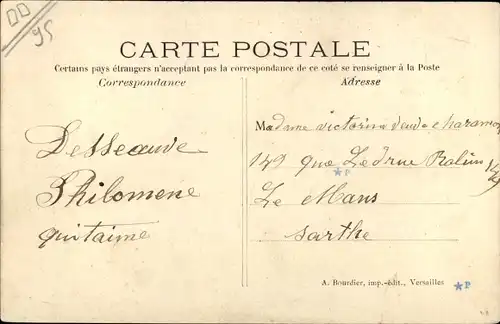 DD
95
CARTE POSTALE
Certains pays étrangers n'acceptant pas la correspondance de ce coté se renseigner à la Poste
Correspondance
Adresse
Desseauve
Philomene
qui t'aime
Madame victorine veuve
149 Ledrue Rolin 149
Le Mans
sarthe
P
A. Bourdier, imp.-édit., Versailles
P